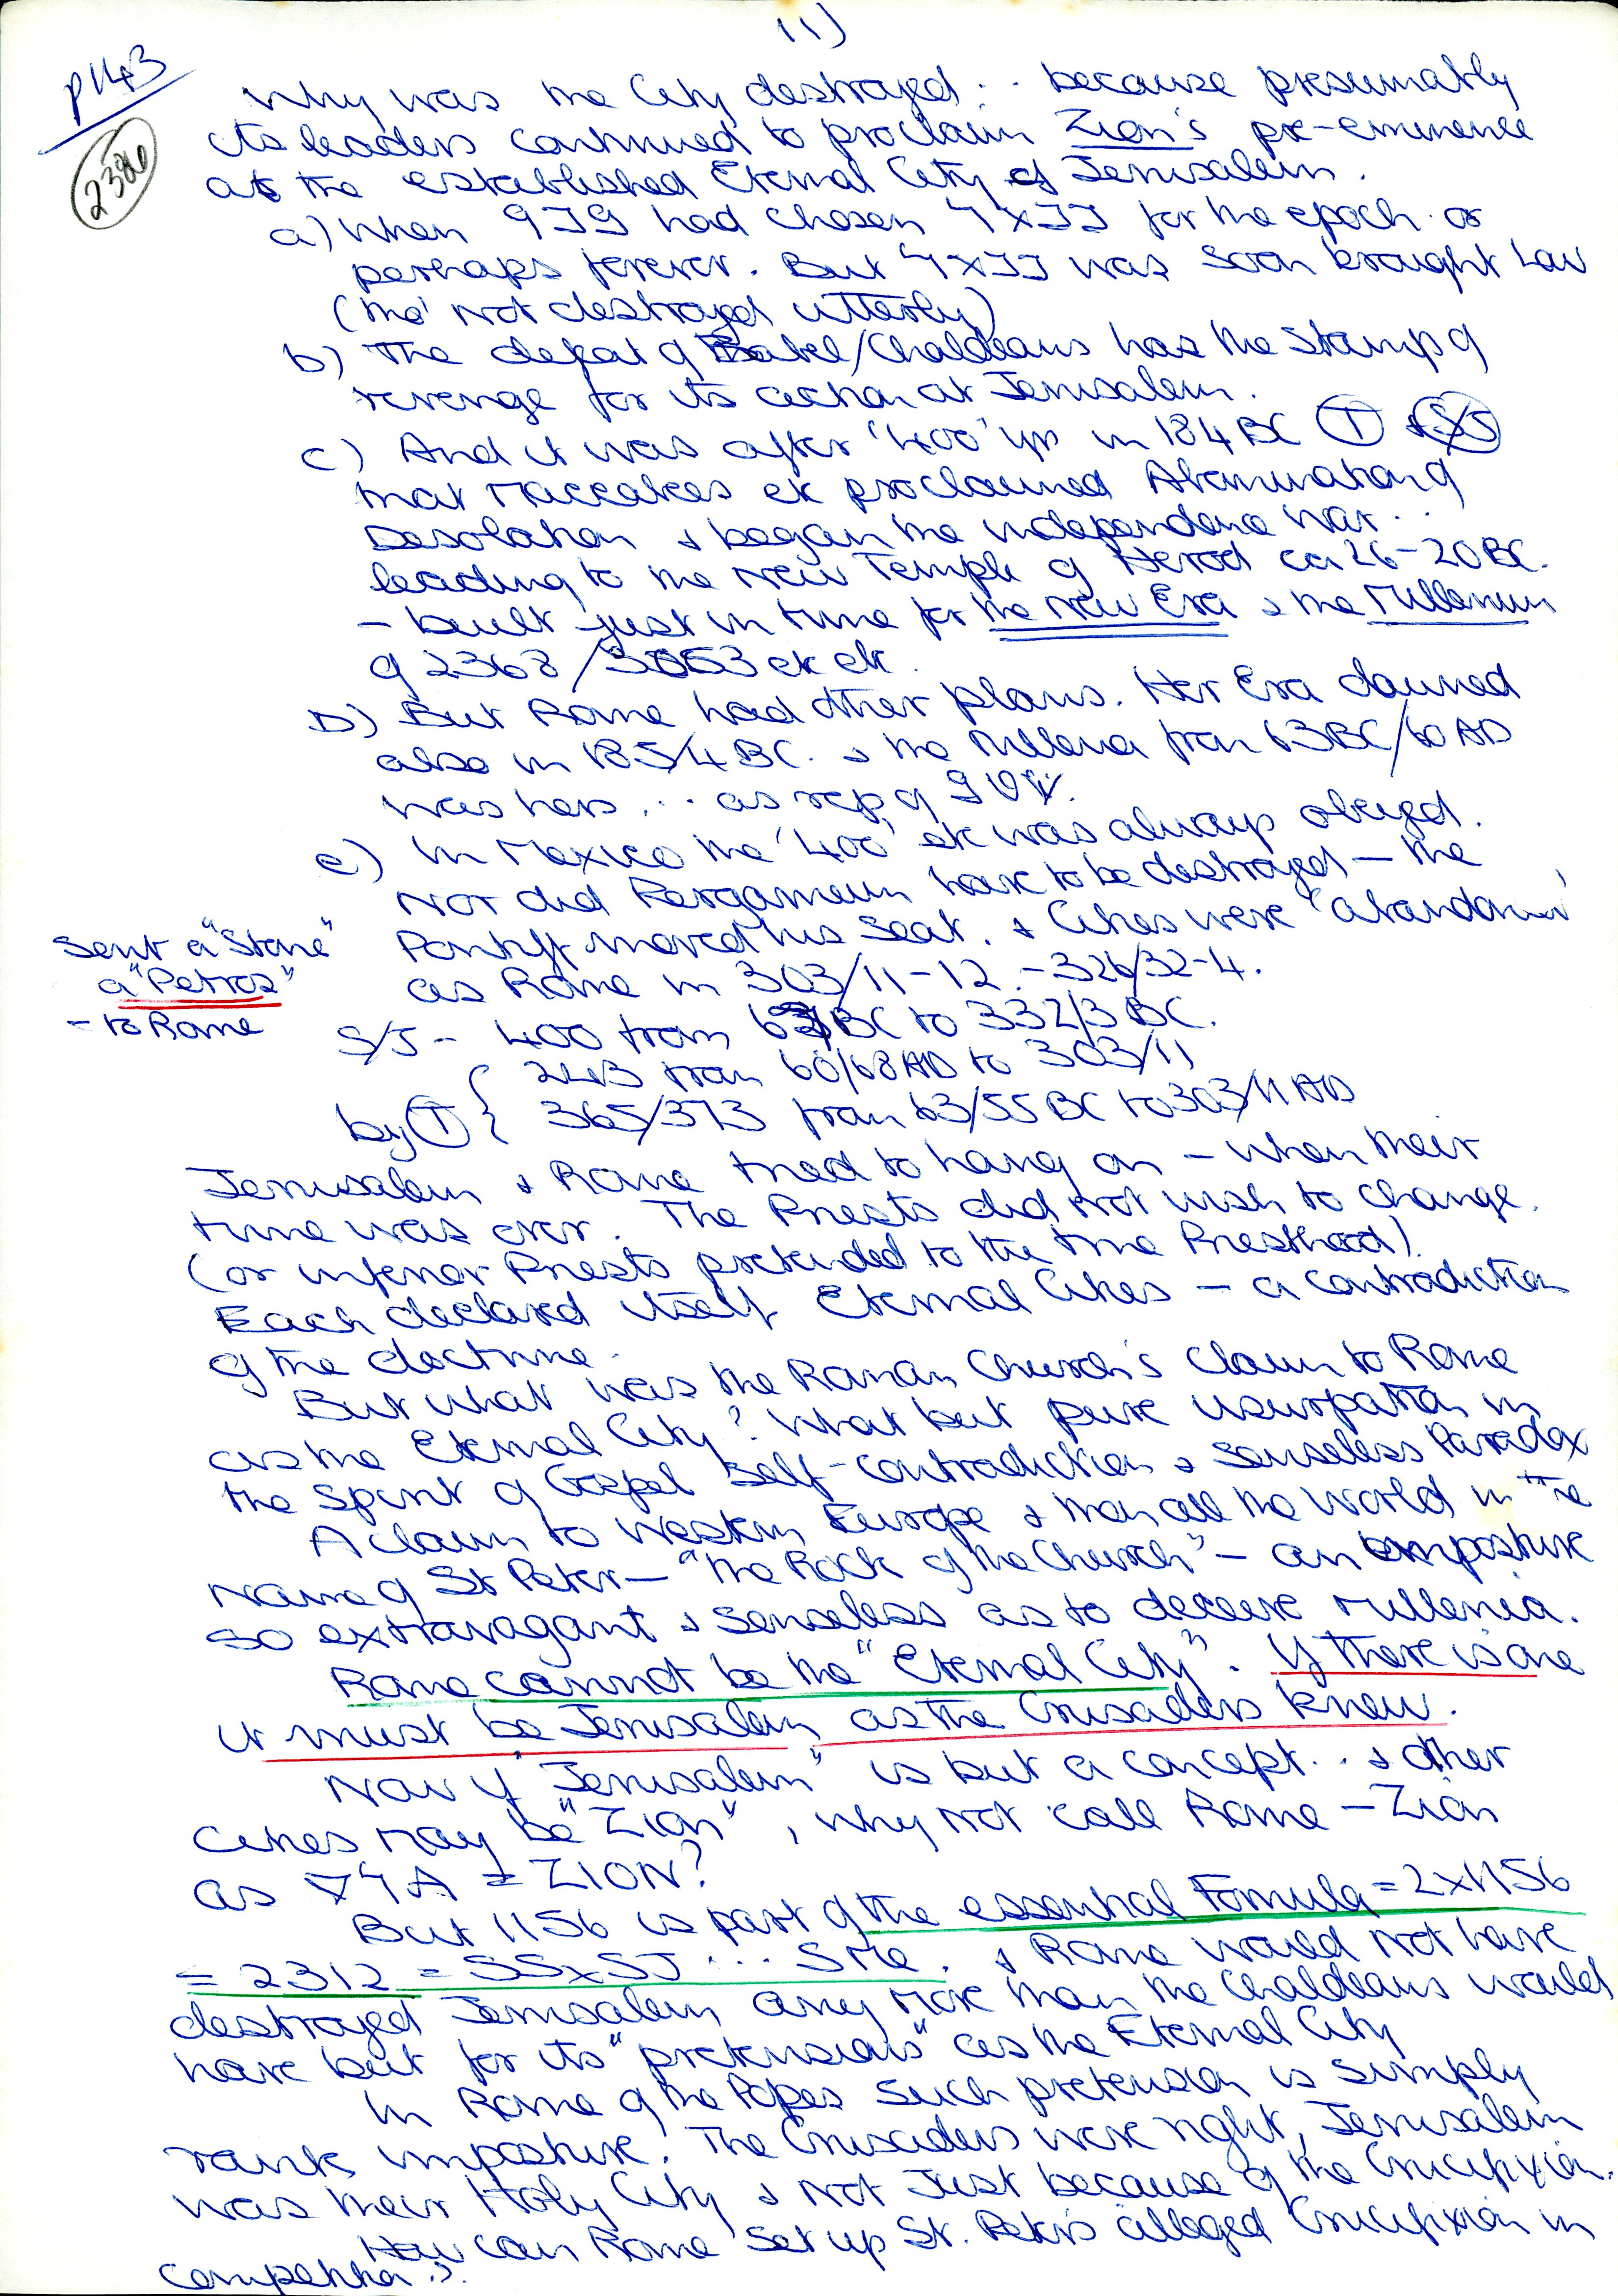 11)
p143
2380
Why was the City destroyed: .. because presumably
its leaders continued to proclaim Zion's pre-eminence
as the established Eternal City of Jerusalem.
a) When had chosen for the epoch or
perhaps forever. But was soon brought Low
(tho' not destroyed utterly)
b) The defeat of Babel/Chaldeans has the stamp of
revenge for its action at Jerusalem.
c) And it was after '400' yrs in 184 BC (T) & (S/J)
that Maccabees etc proclaimed Abomination of
Desolation & began the independence War ..
leading to the New Temple of Herod ca 26-20 BC.
- built just in time for the New Era & the Millenium
of 2368 / etc etc.
D) But Rome had other plans. Her Era dawned
also in 185/4 BC. & the Millenia from 63BC/60 AD
was hers ... as rep of
e) In Mexico the '400' etc was always obeyed.
Nor did Pergamum have to be destroyed - the
Pontiff moved his seat. & Cities were "abandoned"
Sent a "Stone"
a "Petros"
- to Rome
as Rome in 303/11-12. - 326/32-4.
S/J - 400 from BC to 332/3 BC.
by (T) { 243 from 60/68 AD to 303/11
365/373 from 63/55 BC to 303/11 AD
Jerusalem & Rome tried to hang on - when their
time was over. The Priests did not wish to change.
(or inferior Priests pretended to the true Priesthood).
Each declared itself Eternal Cities - a contradiction
of the doctrine.
But what was the Roman Church's claim to Rome
as the Eternal City? What but pure usurpation in
the spirit of Gospel self-contradiction & senseless Paradox
A claim to Western Europe & then all the World in the
Name of St Peter - "The Rock of the Church" - an imposture
so extravagant & senseless as to deceive Millenia.
Rome cannot be the "Eternal City". If there is one
it must be Jerusalem, as the Crusaders knew.
Now if "Jerusalem" is but a concept... & other
cities may be "Zion", why not call Rome - Zion
as = ZION?
But 1156 is part of the essential Formula = 2x1156
= 2312 = SSxSJ ... SMe. & Rome would not have
destroyed Jerusalem any more than the Chaldeans would
have but for its "pretensions" as the Eternal City
In Rome of the Popes such pretension is simply
rank imposture. The Crusaders were right, Jerusalem
was their Holy City & not Just because of the Crucifixion.
How can Rome set up St. Peter's alleged Crucifixion in
competition?.